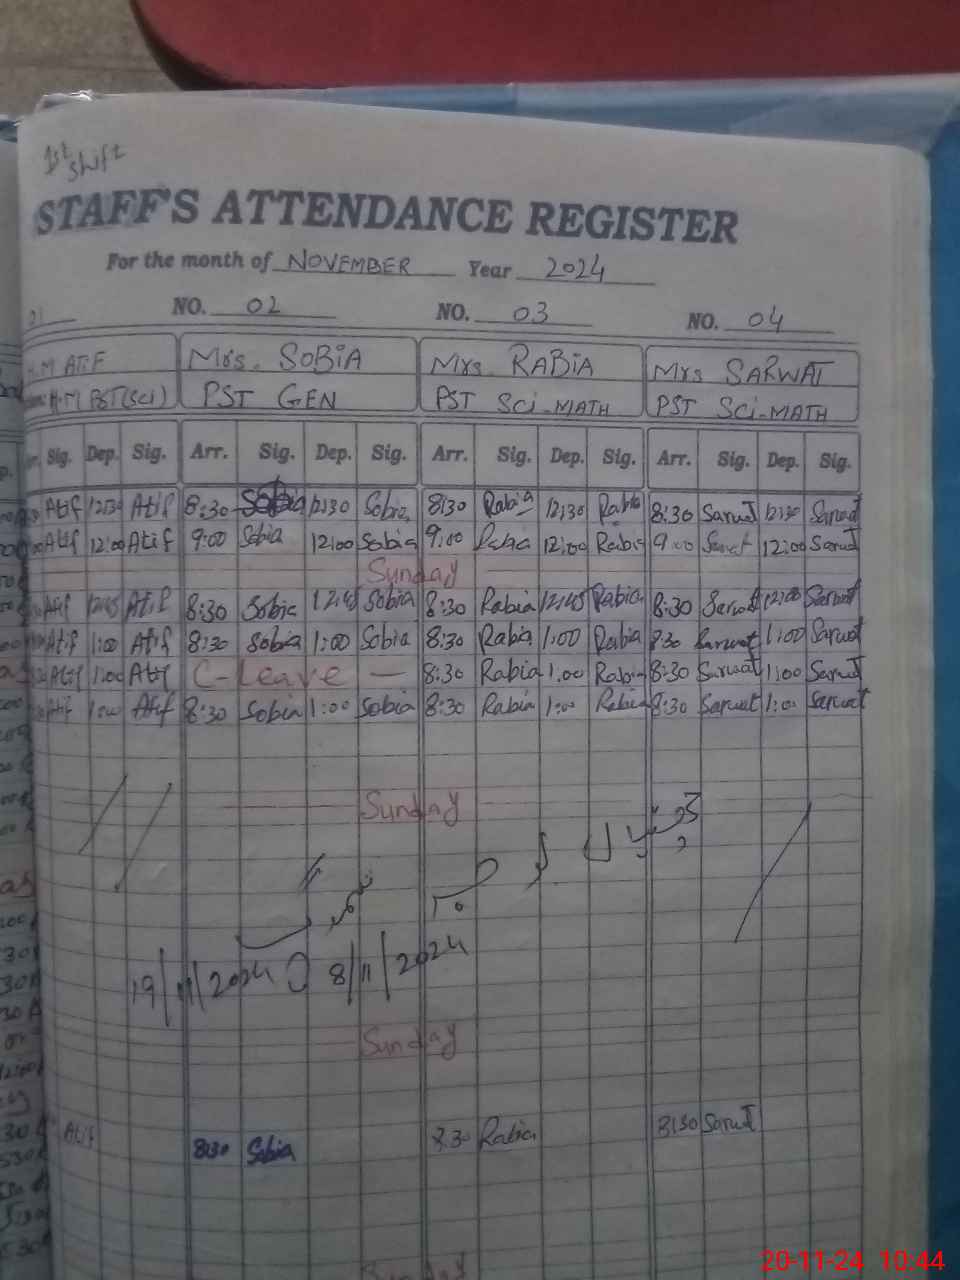 1st shift
STAFF'S ATTENDANCE REGISTER
For the month of NOVEMBER Year 2024
NO. 02 NO. 03 NO. 04
H.M ATIF Mrs. SOBIA Mrs. RABIA Mrs SARWAT
H.M PST (Sci) PST GEN PST Sci-MATH PST Sci-MATH
Sig. Dep. Sig. Arr. Sig. Dep. Sig. Arr. Sig. Dep. Sig. Arr. Sig. Dep. Sig.
Atif 12:30 Atif 8:30 Sobia 12:30 Sobia 8:30 Rabia 12:30 Rabia 8:30 Sarwat 12:30 Sarwat
Atif 12:00 Atif 9:00 Sobia 12:00 Sobia 9:00 Rabia 12:00 Rabia 9:00 Sarwat 12:00 Sarwat
Sunday
Atif 12:45 Atif 8:30 Sobia 12:45 Sobia 8:30 Rabia 12:45 Rabia 8:30 Sarwat Sarwat
Atif 1:00 Atif 8:30 Sobia 1:00 Sobia 8:30 Rabia 1:00 Rabia 8:30 Sarwat 1:00 Sarwat
Atif 1:00 Atif C-Leave — 8:30 Rabia 1:00 Rabia 8:30 Sarwat 1:00 Sarwat
Atif 1:00 Atif 8:30 Sobia 1:00 Sobia 8:30 Rabia 1:00 Rabia 8:30 Sarwat 1:00 Sarwat
Sunday
19/11/2024 8/11/2024
Sunday
Atif 8:30 Sobia 8:30 Rabia 8:30 Sarwat
Sunday
20-11-24 10:44